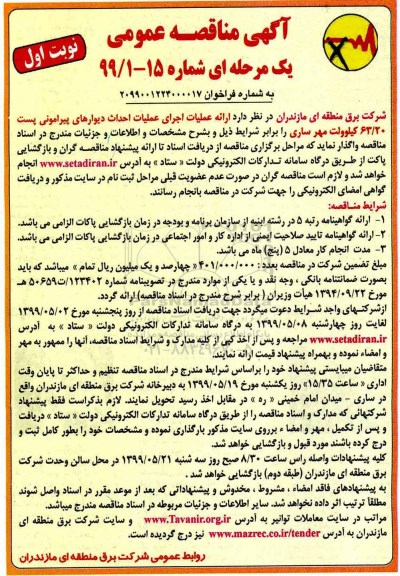 آگهی مناقصه عمومی
نوبت اول
یک مرحله ای شماره ۱۵-۹۹/۱
به شماره فراخوان ۲۰۹۹۰۰۱۲۲۴۰۰۰۰۱۷
شرکت برق منطقه ای مازندران در نظر دارد ارائه عملیات اجرای عملیات احداث دیوارهای پیرامونی پست
۶۳/۲۰ کیلوولت مهر ساری را برابر شرایط ذیل و بشرح مشخصات و اطلاعات و جزئیات مندرج در اسناد
مناقصه واگذار نماید که مراحل برگزاری مناقصه از دریافت اسناد تا ارائه پیشنهاد مناقصه گران و بازگشایی
پاکت از طریق درگاه سامانه تدارکات الکترونیکی دولت « ستاد » به آدرس www.setadiran.ir انجام
خواهد شد و لازم است مناقصه گران در صورت عدم عضویت قبلی مراحل ثبت نام در سایت مذکور و دریافت
گواهی امضای الکترونیکی را جهت شرکت در مناقصه بانجام رسانند.
شرایط مناقصه:
۱- ارائه گواهینامه رتبه ۵ در رشته ابنیه از سازمان برنامه و بودجه در زمان بازگشایی پاکات الزامی می باشد.
۲- ارائه گواهینامه تایید صلاحیت ایمنی از اداره کار و امور اجتماعی در زمان بازگشایی پاکات الزامی می باشد.
۳- مدت انجام کار معادل ۵ (پنج) ماه می باشد.
مبلغ تضمین شرکت در مناقصه بعدد : ۴۰۱/۰۰۰/۰۰۰ « چهارصد و یک میلیون ریال تمام » میباشد که باید
بصورت ضمانتنامه بانکی ، وجه نقد و یا یکی از موارد مندرج در تصویبنامه شماره ۱۲۳۴۰۲/ت۵۰۶۵۹ هـ
مورخ ۱۳۹۴/۰۹/۲۲ هیأت وزیران ( برابر شرح مندرج در اسناد مناقصه) ارائه گردد.
ازشرکتهای واجد شرایط دعوت میگردد جهت دریافت اسناد مناقصه از روز پنجشنبه مورخ ۱۳۹۹/۰۵/۰۲
لغایت روز چهارشنبه ۱۳۹۹/۰۵/۰۸ به درگاه سامانه تدارکات الکترونیکی دولت « ستاد » به آدرس
www.setadiran.ir مراجعه و پس از اخذ کپی از کلیه مدارک و شرایط اسناد مناقصه، آنها را ممهور به مهر
و امضاء نموده و بهمراه پیشنهاد قیمت ارائه نمایند.
متقاضیان میبایستی پیشنهاد خود را براساس شرایط مندرج در اسناد مناقصه تنظیم و حداکثر تا پایان وقت
اداری « ساعت ۱۵/۳۵» روز یکشنبه مورخ ۱۳۹۹/۰۵/۱۹ به دبیرخانه شرکت برق منطقه ای مازندران واقع
در ساری - میدان امام خمینی « ره » در مقابل اخذ رسید تحویل نمایند. لازم بذکراست فقط پیشنهاد
شرکتهائی که مدارک و اسناد مناقصه را از طریق درگاه سامانه تدارکات الکترونیکی دولت « ستاد » دریافت
و پس از تکمیل ، مهر و امضاء برروی سایت مذکور بارگذاری نموده و مشخصات خود را بطور کامل ثبت و
درج کرده باشند مورد قبول و بازگشایی خواهد شد.
کلیه پیشنهادات واصله راس ساعت ۸/۳۰ صبح روز سه شنبه ۱۳۹۹/۰۵/۲۱ در محل سالن وحدت شرکت
برق منطقه ای مازندران (طبقه دوم) بازگشایی خواهد شد .
به پیشنهادهای فاقد امضاء ، مشروط ، مخدوش و پیشنهاداتی که بعد از موعد مقرر در اسناد واصل شوند
مطلقاً ترتیب اثر داده نخواهد شد. سایر اطلاعات و جزئیات مربوطه در اسناد مناقصه مندرج میباشد.
مراتب در سایت معاملات توانیر به آدرس www.Tavanir.org.ir و سایت شرکت برق منطقه ای
مازندران به آدرس www.mazrec.co.ir/tender نیز درج گردیده است.
روابط عمومی شرکت برق منطقه ای مازندران